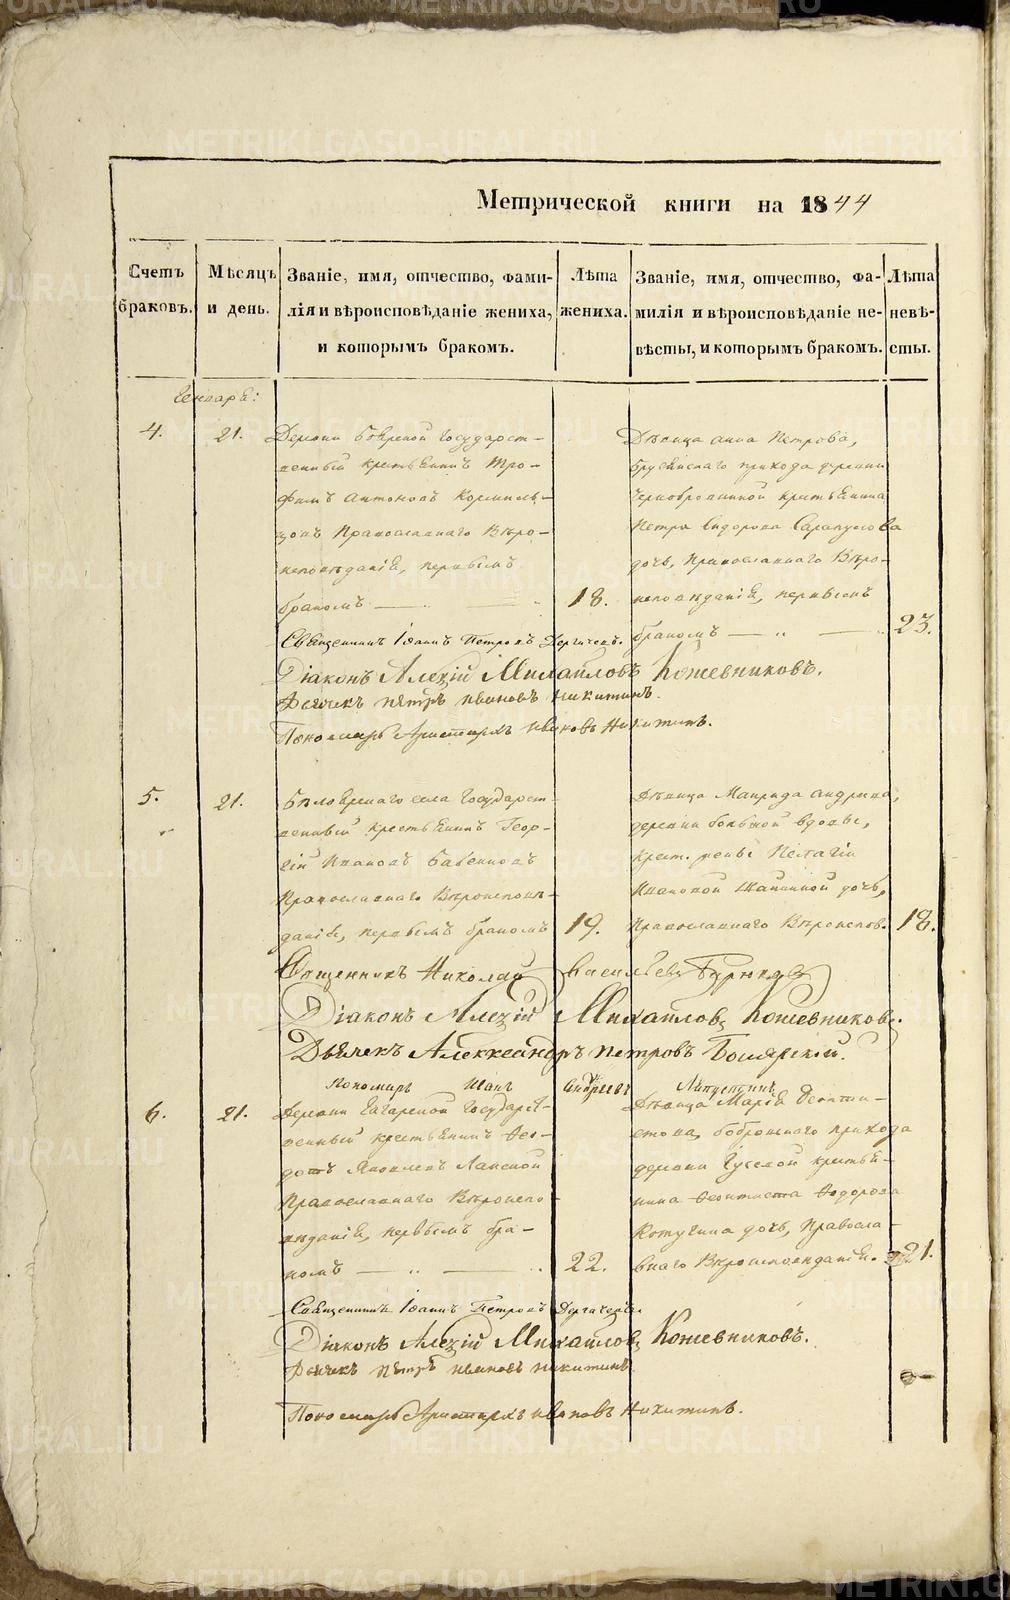 Метрической книги на 1844
Счетъ браковъ.
Мѣсяцъ и день.
Званіе, имя, отчество, фами-
лія и вѣроисповѣданіе жениха,
и которымъ бракомъ.
Лѣта
жениха.
Званіе, имя, отчество, фа-
милія и вѣроисповѣданіе не-
вѣсты, и которымъ бракомъ.
Лѣта
невѣ-
сты.
Генваря:
4.
21.
Деревни Государст-
венный крестьянинъ Тро-
фимъ Антоновъ
Православнаго Вѣро-
исповѣданія, первымъ
бракомъ
18.
Дѣвица Анна Петрова,
прихода деревни
крестьянина
Петра Сидорова Сарапулова
дочь, Православнаго Вѣро-
исповѣданія, первымъ
бракомъ
23.
Священникъ Іоаннъ Петровъ Дергачевъ.
Діаконъ Алексій Михайловъ Кожевниковъ.
Дьячекъ Петръ Ивановъ Никитинъ.
Пономарь Аристархъ Ивановъ Никитинъ.
5.
21.
Бѣлоярскаго села Государст-
венный крестьянинъ Геор-
гій Ивановъ
Православнаго Вѣроисповѣ-
данія, первымъ бракомъ
19.
Дѣвица Маврида Андреева,
деревни вдовы,
крест. жены Пелагіи
Ивановой дочь,
Православнаго Вѣроиспов.
18.
Священникъ Николай Васильевъ
Діаконъ Алексій Михайловъ Кожевниковъ.
Дьячекъ Александръ Петровъ Боярскій.
Пономарь Иванъ Андреевъ
6.
21.
Деревни Гагарской Государст-
венный крестьянинъ Ѳео-
дотъ Яковлевъ
Православнаго Вѣроиспо-
вѣданія, первымъ бра-
комъ
22.
Дѣвица Марія Ѳеокти-
стова, Бобровскаго прихода
деревни крестья-
нина Ѳеоктиста Ѳедорова
дочь, Правосла-
внаго Вѣроисповѣданія.
21.
Священникъ Іоаннъ Петровъ Дергачевъ.
Діаконъ Алексій Михайловъ Кожевниковъ.
Дьячекъ Петръ Ивановъ Никитинъ
Пономарь Аристархъ Ивановъ Никитинъ.
METRIKI.GASO-URAL.RU